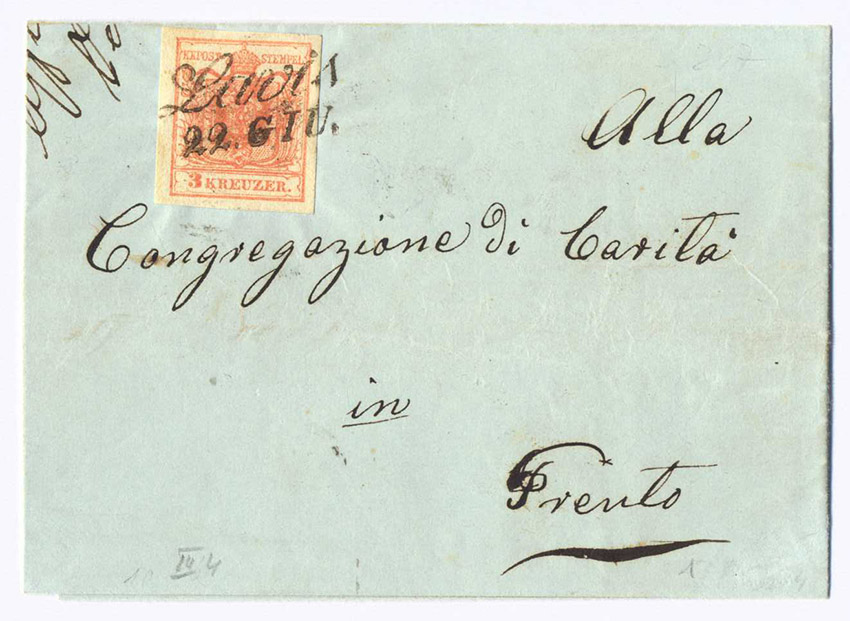 KKPOST-STEMPEL
Lavis
22. GIU.
3 KREUZER.
Alla
Congregazione di Carità
in
Trento
IV 4